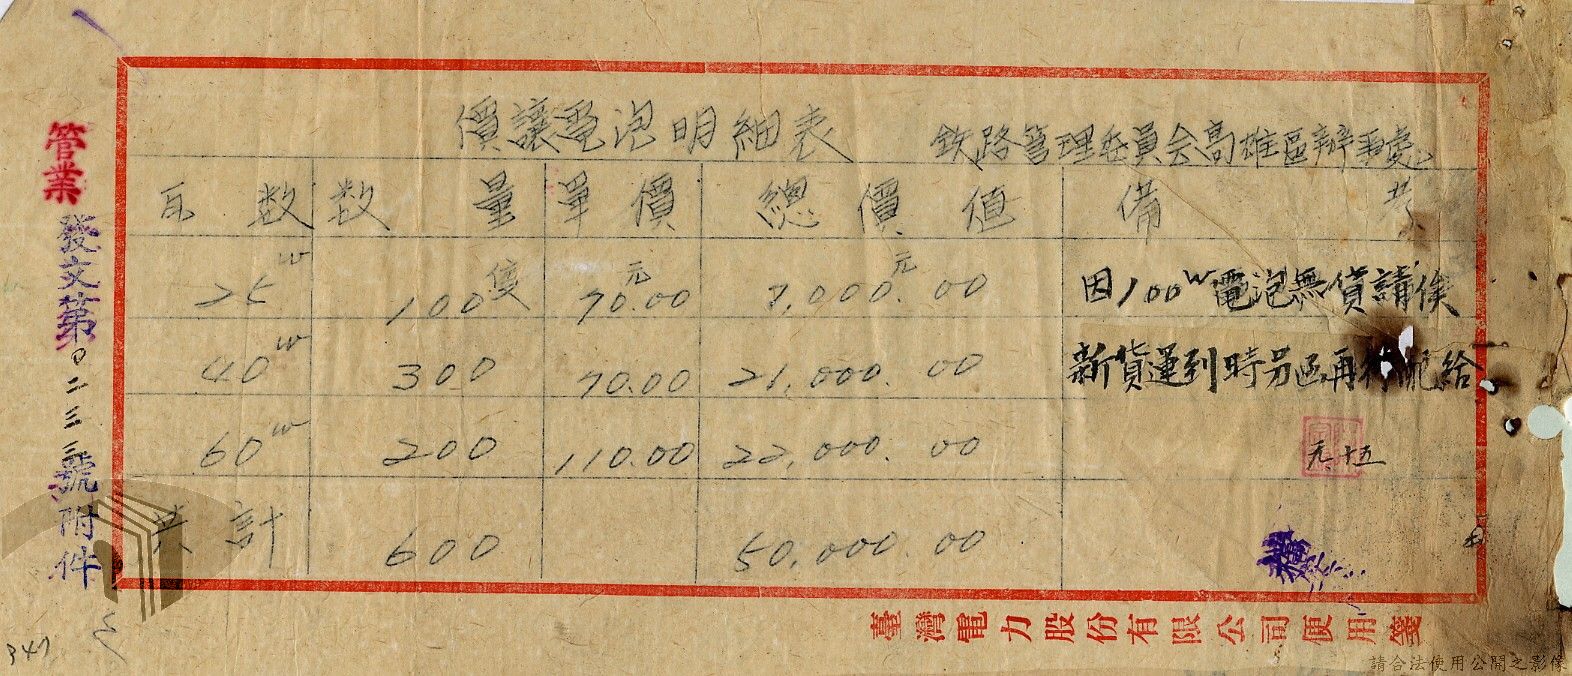 價讓電泡明細表 鉄路管理委員会高雄區辦事處
瓦数 数量 單價 總價值 備考
25W 100隻 70.00元 7,000.00元
40W 300 70.00 21,000.00
60W 200 110.00 22,000.00
共計 600 50,000.00
因100W電泡無貨請俟
新貨運到時另函再行配給
元十五
管業發文第0二三三號附件
臺灣電力股份有限公司使用箋
347
請合法使用公開之影像